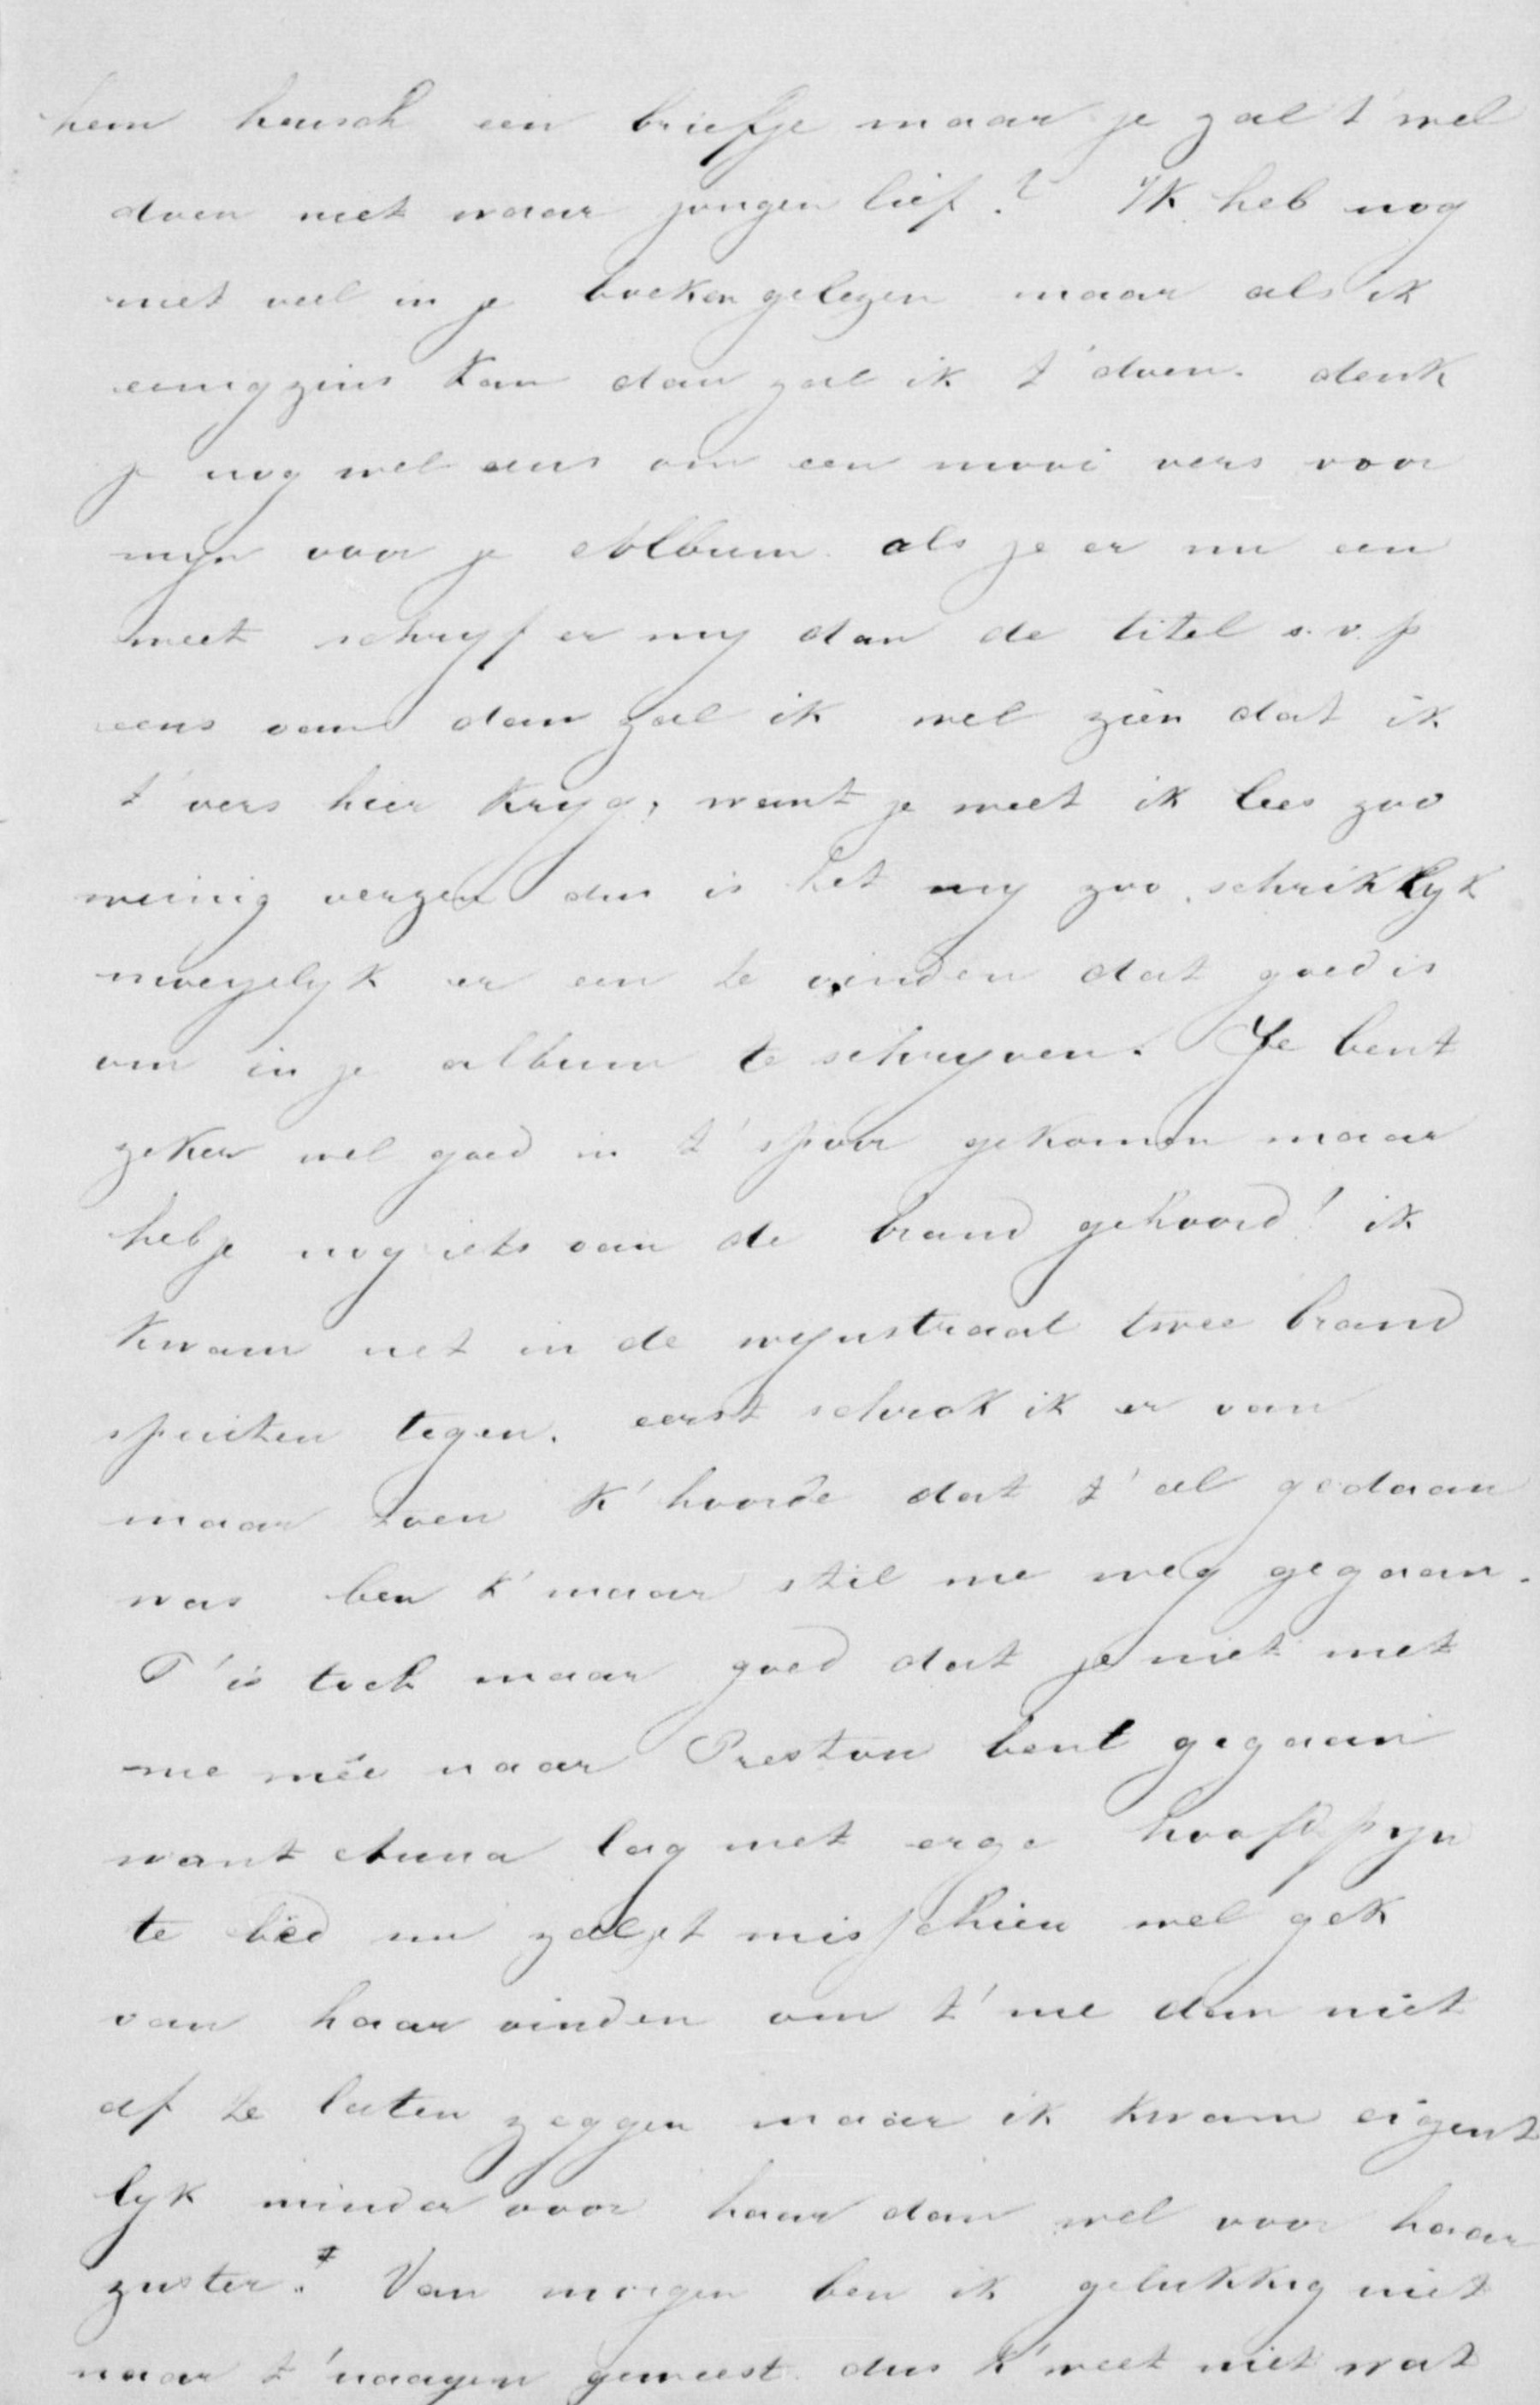 hem heusch een briefje maar je zal t' wel
doen niet waar jongen lief.? Ik heb nog
niet veel in je boeken gelezen maar als ik
eenigzins kan dan zal ik t' doen. denk
je nog wel eens om een mooi vers voor
myn voor je Album. als je er nu een
weet schryf er my dan de titel s.v.p
eens van dan zal ik wel zien dat ik
t' vers hier kryg, want je weet ik lees zoo
weinig verzen dus is het my zoo schriklyk
moeyelyk er een te vinden dat goed is
om in je album te schryven. Je bent
zeker wel goed in t' spoor gekomen maar
heb je nog iets van de brand gehoord! ik
kwam net in de wynstraat twee brand
spuiten tegen. eerst schrok ik er van
maar toen k' hoorde dat t' al gedaan
was ben k' maar stil me weg gegaan.
T' is toch maar goed dat je niet met
me mée naar Preston bent gegaan
want Anna lag met erge hoofdpyn
te bed nu zal je t misschien wel gek
van haar vinden om t' me dan niet
af te laten zeggen maar ik kwam eigent
lyk minder voor haar dan wel voor haar
zuster. Van morgen ben ik gelukkig niet
naar t' naayen geweest. dus k' weet niet wat